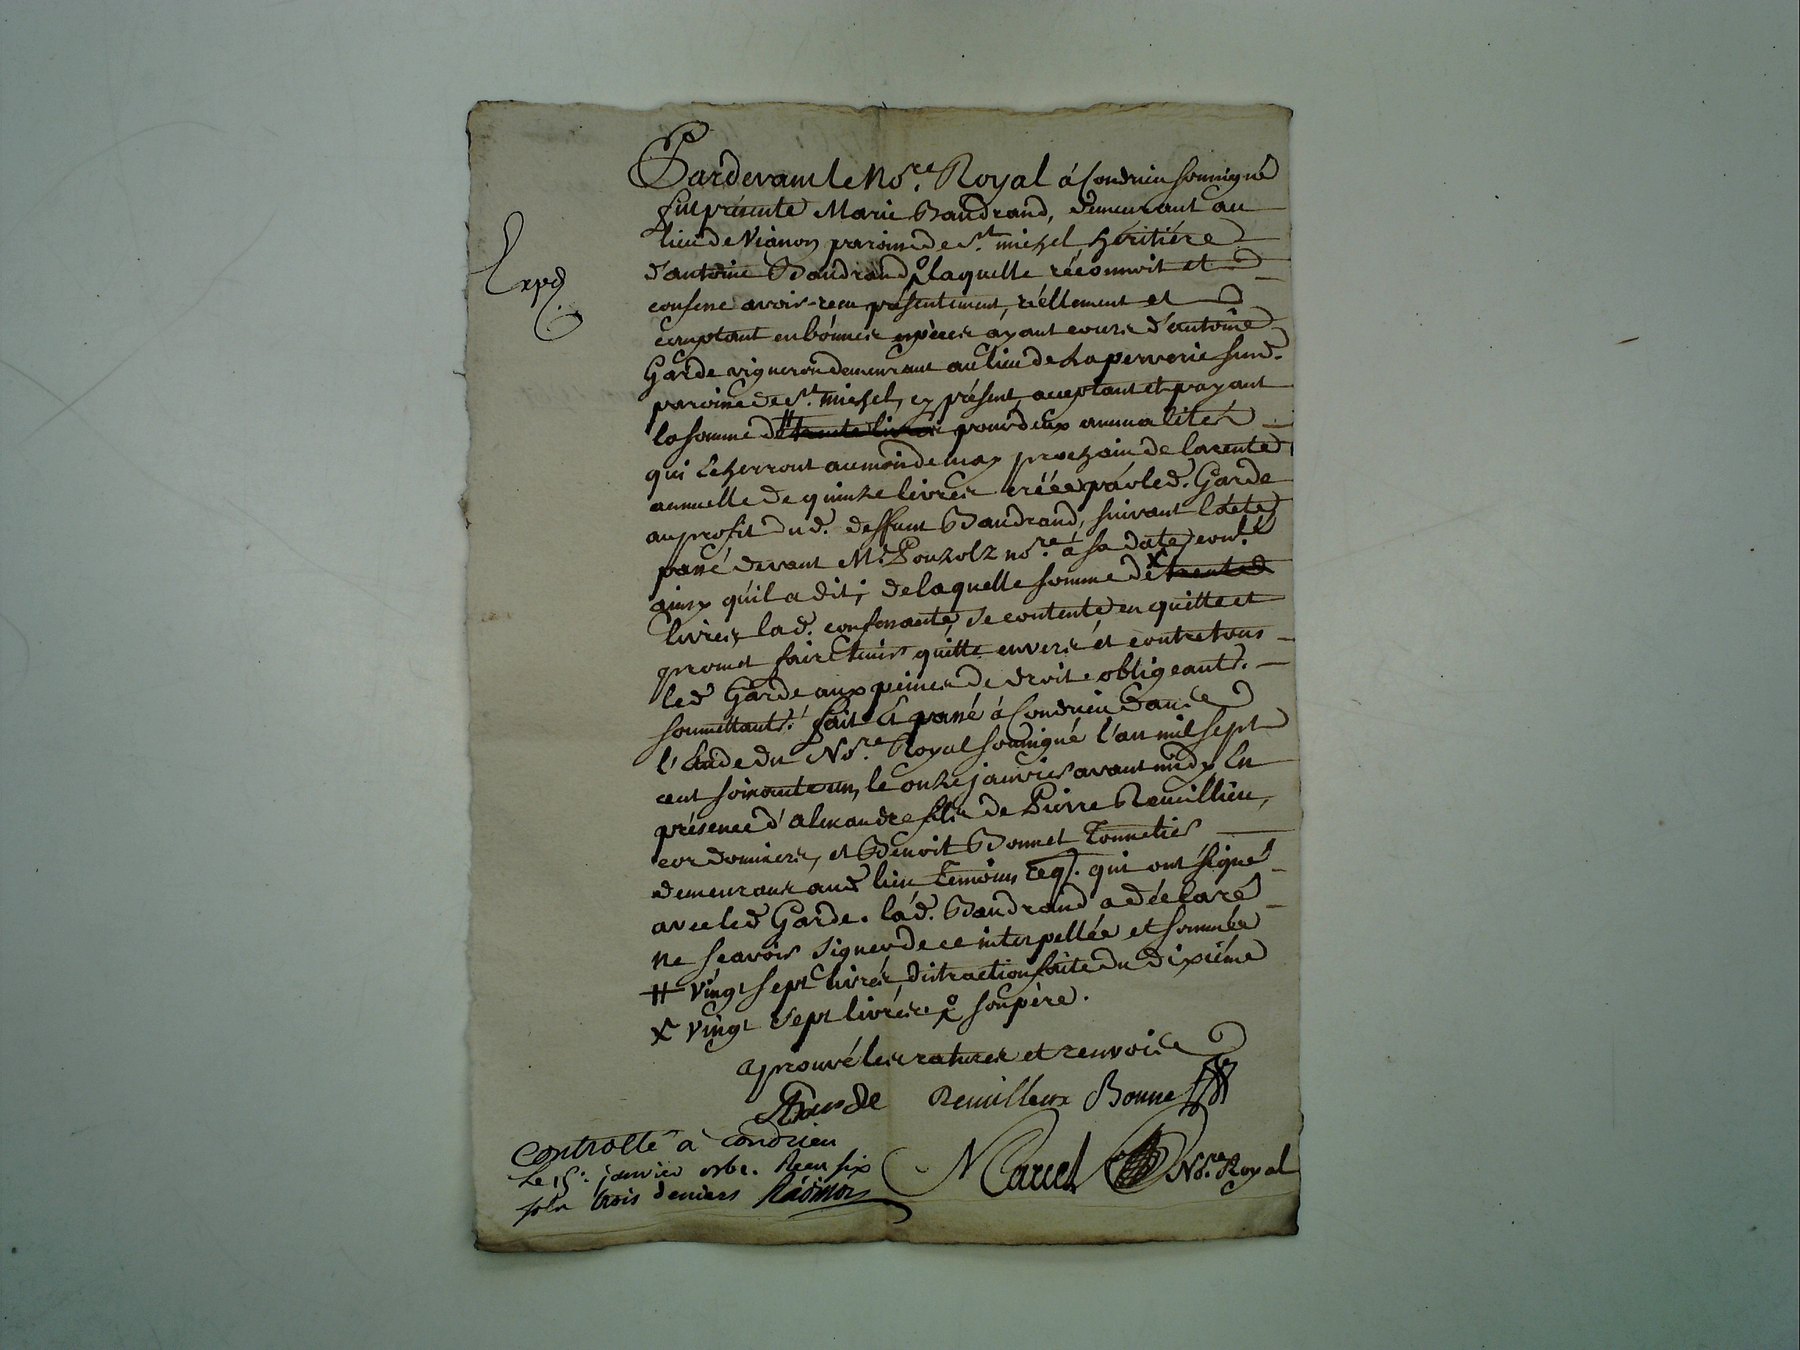 Pardevant le No.re Royal à Condrieu soussigné
fut présente Marie Baudrand, demeurant au
lieu de Vianon paroisse de St. michel héritiére
d'antoine Baudrand laquelle réconnoit et
confesse avoir reçu présentement, réellement et
comptant en bónnes espèces ayant cours d'antoine
Garde vigneron demeurant au lieu de Laperverie susd.
paroisse de St. michel, cy présent acceptant et payant
la somme de # trente livres pour deux annualités
qui écherront au mois de may prochain de la rente
annuelle de quinze livres créée par led. Garde
au profit dud. deffunt Baudrand, suivant l'acte
passé devant Me Pouzolz no.re à sa date con.lé
ainsy qu'il a dit; de laquelle somme de x trente
livres lad. confessante se contente en quitte et
promet faire tenir quitte envers et contre tous
led Garde aux peines de droit obligeants.
soumettants. fait et passé à Condrieu dans
l'étude du No.re Royal soussigné l'an mil sept
cent soixante un, le onze janvier avant midy En
présence d'alexandre fils de Pierre Remillieu,
cordonniers, et Benoit Bonnet Tonnelier
demeurans aud lieu Témoins req. qui ont signé
avec led Garde. lad. Baudrand a déclaré
ne sçavoir signer de ce interpellée et sommée
# vingt sept livres, distraction faite du dixiéme
x vingt sept livres, son père.
aprouvé les ratures et renvois
Garde Remilleux Bonnet
Expd
Controllé à Condrieu
Le 15e. janvier 1761. Reçu six
sols trois deniers
Marcel No.re Royal